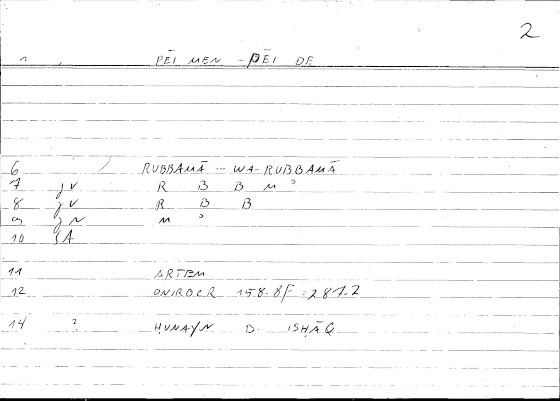 2
1 PĒI MEN - PĒI DE
6 RUBBAMĀ ... WA-RUBBAMĀ
7 gV R B B M ʾ
8 gV R B B
9 gN M ʾ
10 gA
11 ARTEM
12 ONIROCR 158.8F = 287.2
14 ? ḤUNAYN B. ISḤĀQ